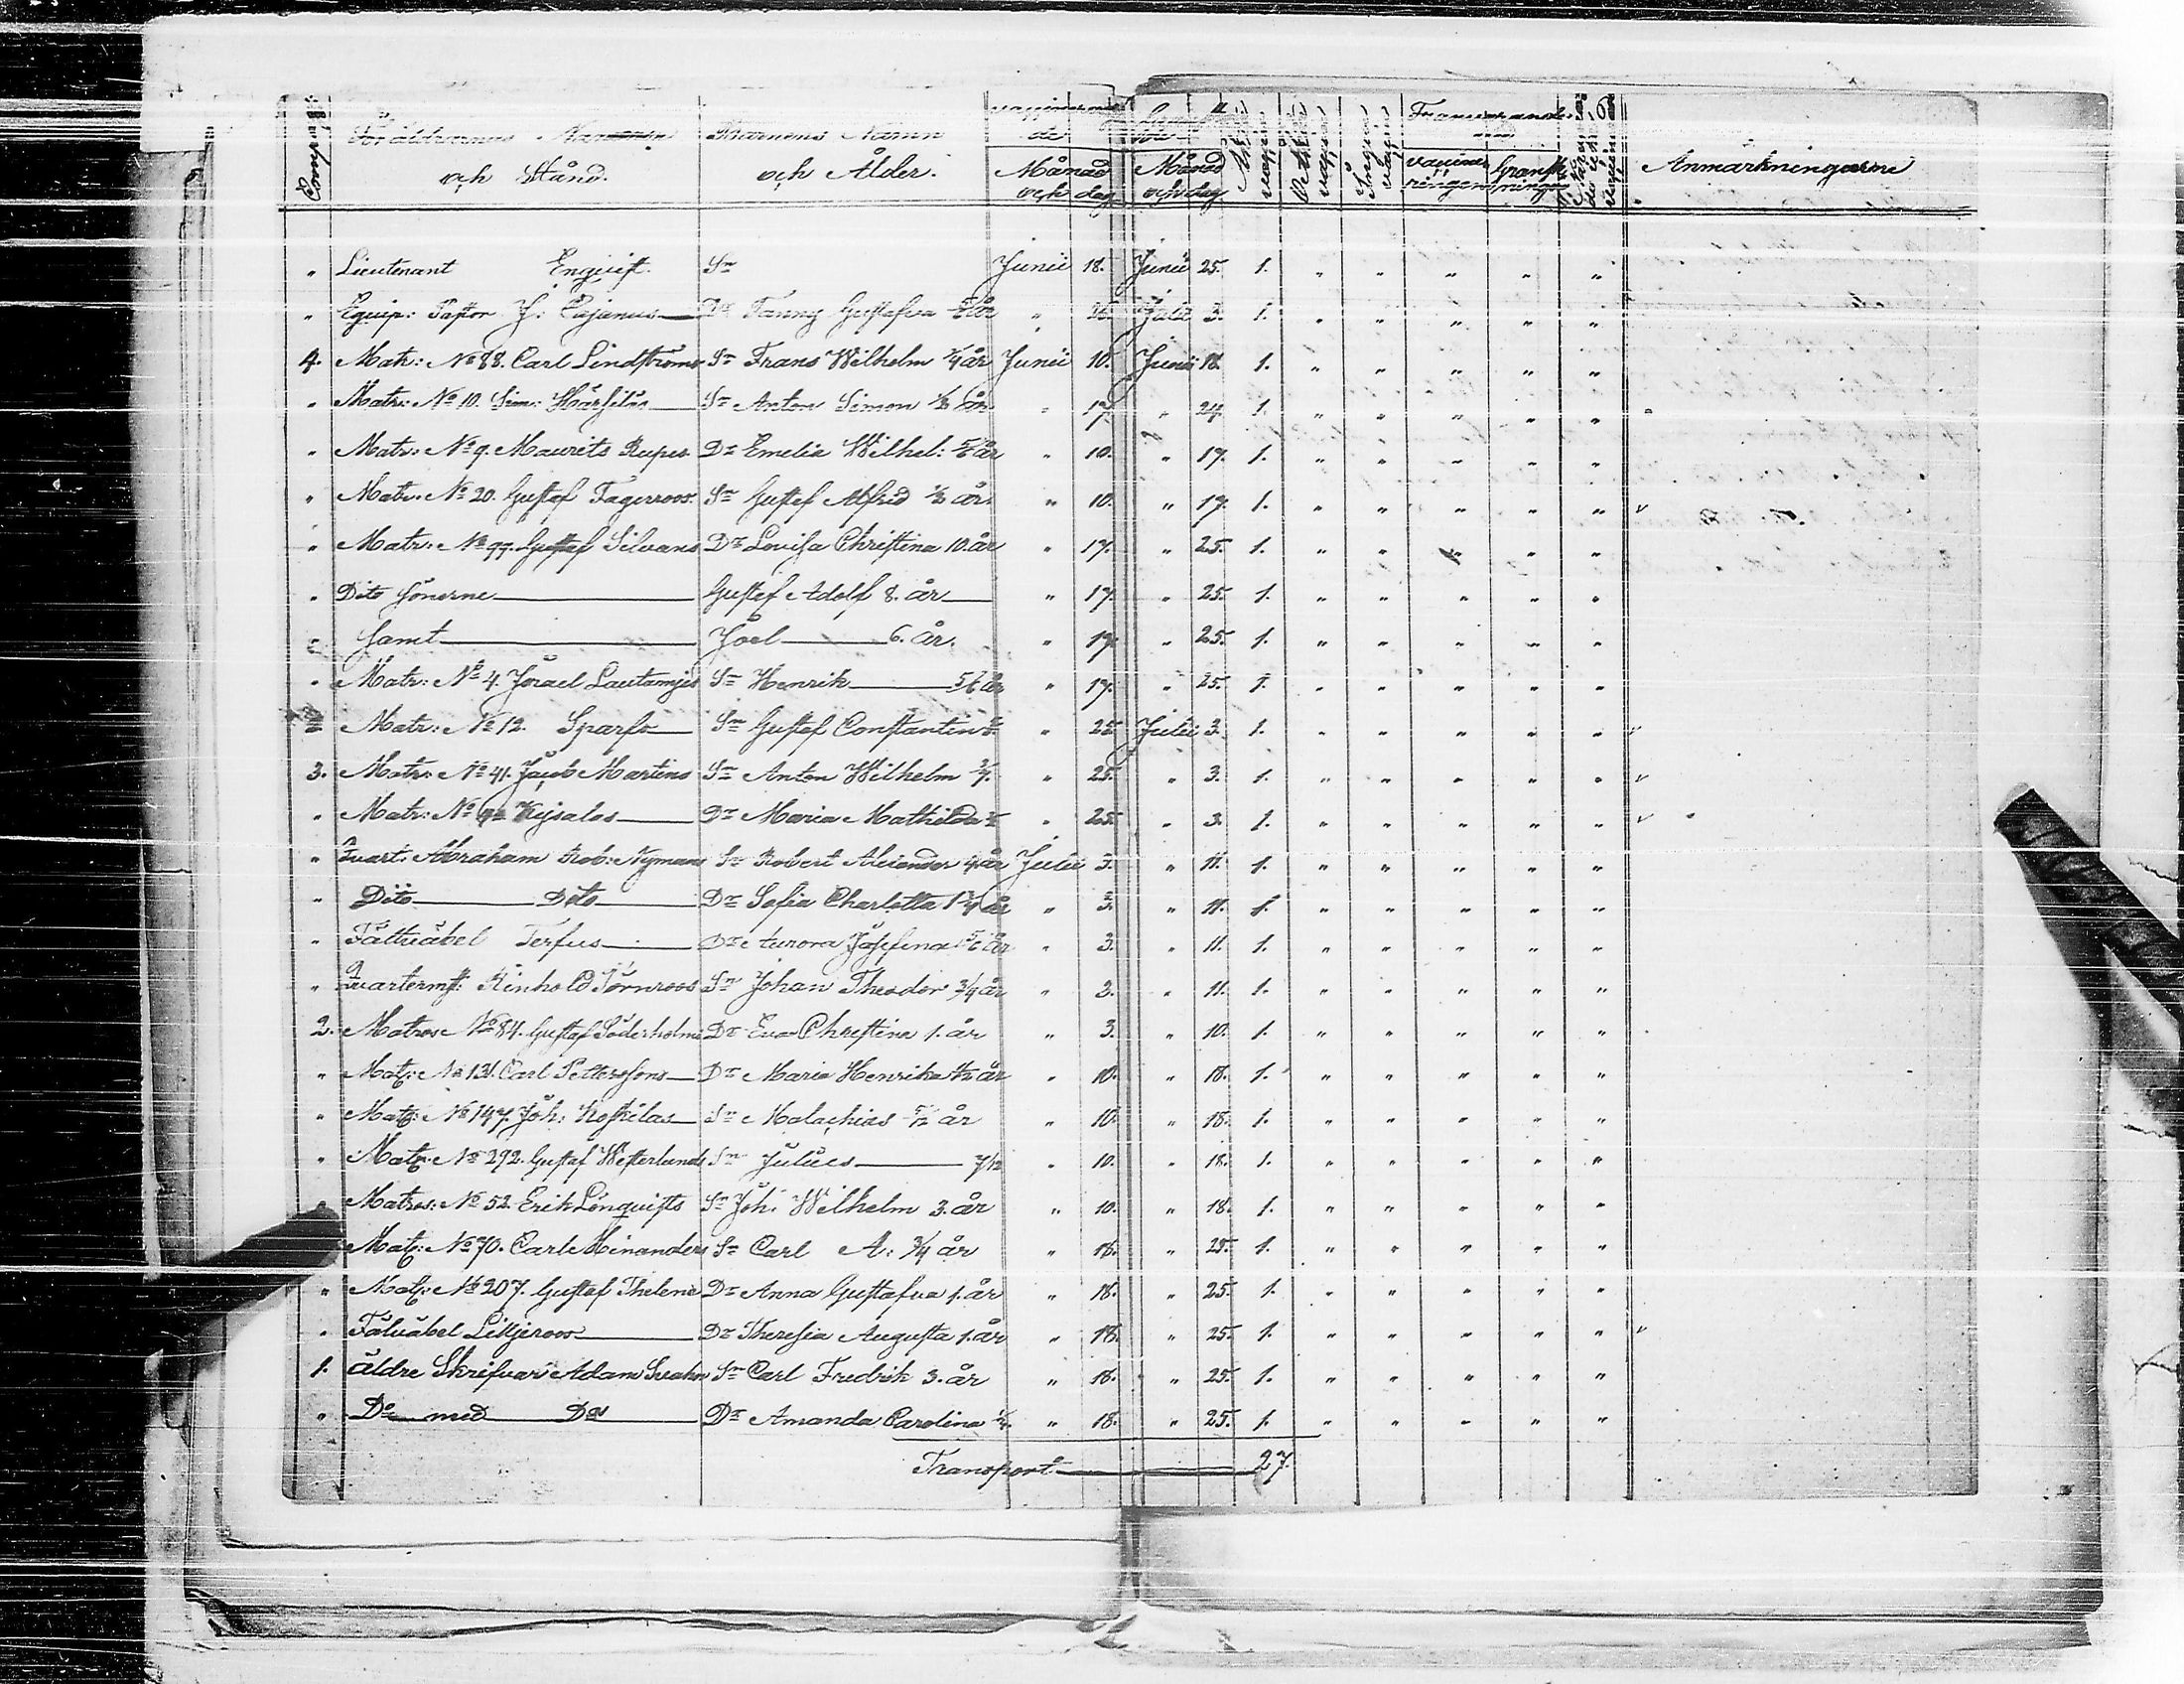 Compani Föräldrarnes Namn Barnens Namn
och Stånd. och Ålder. Månad och dag Månad och dag vaccineringen Granskningen Anmärkningarne
" Lieutenant Enqvist. Sn Junii 18. Junii 25. 1. " " " " "
" Equip: Pastor J: Cajanus Dr Fanny Gustafva " 26. Julii 3. 1. " " " " "
4. Matr: No 88. Carl Lindströms Sn Frans Wilhelm 3/4 år Junii 10. Junii 18. 1. " " " " "
" Matr: No 10. Sim: Härkiläs Sn Anton Simon 1/2 år " 17. " 24. 1. " " " " "
" Matr: No 9. Maurits Rupes Dr Emelia Wilhel: 5/6 år " 10. " 17. 1. " " " " "
" Matr: No 20. Gustaf Fagerroos. Sn Gustef Alfrid 1/2 år. " 10. " 17. 1. " " " " "
" Matr: No 99. Gustaf Silvans Dr Lovisa Christina 10. år " 17. " 25. 1. " " " " "
" Dito Sönerne Gustef Adolf 8. år " 17. " 25. 1. " " " " "
" samt Joel 6. år. " 17. " 25. 1. " " " " "
" Matr: No 4. Israel Sn Henrik 5/6 år " 17. " 25. 1. " " " " "
" Matr: No 12. Sparfs Sn Gustef Constantin " 25. Julii 3. 1. " " " " "
3. Matr: No 41. Jacob Martins Sn Anton Wilhelm 3/4. " 25. " 3. 1. " " " " "
" Matr: No Kejsalos Dr Maria Mathilda " 25. " 3. 1. " " " " "
" Quart: Abraham Rob: Nymans Sn Robert Alexander 4. år Julii 3. " 11. 1. " " " " "
" Dito Dito Dr Sofia Charlotta 1 3/4 år " 3. " 11. 1. " " " " "
" Fältväbel Terfus Dr Aurora Josefina 5/6 år " 3. " 11. 1. " " " " "
" Quartermst: Rinhold Törnroos Sn Johan Theodor 3/4 år " 3. " 11. 1. " " " " "
2. Matros No 84. Gustaf Söderholms Dr Eva Christina 1. år " 3. " 10. 1. " " " " "
" Matr: No 131. Carl Pettersons Dr Maria Henrika år " 10. " 18. 1. " " " " "
" Matr: No 147. Joh: Koskilas Sn Malachias 5/12 år " 10. " 18. 1. " " " " "
" Matr: No 292. Gustaf Westerlunds Sn Julius 7/12 " 10. " 18. 1. " " " " "
Matros: No 52. Erik Lönquists Sn Joh: Wilhelm 3. år " 10. " 18. 1. " " " " "
Matr: No 70. Carl Minanders Sn Carl A: 3/4 år " 18. " 25. 1. " " " " "
" Matr: No 207. Gustaf Thelens Dr Anna Gustafva 1. år " 18. " 25. 1. " " " " "
" Fälväbel Liljeroos Dr Theresia Augusta 1. år " 18. " 25. 1. " " " " "
1. äldre Skrifvar Adam Svahn Sn Carl Fredrik 3. år " 18. " 25. 1. " " " " "
" Do med Do Dr Amanda Carolina " 18. " 25. 1. " " " " "
Transport 27.